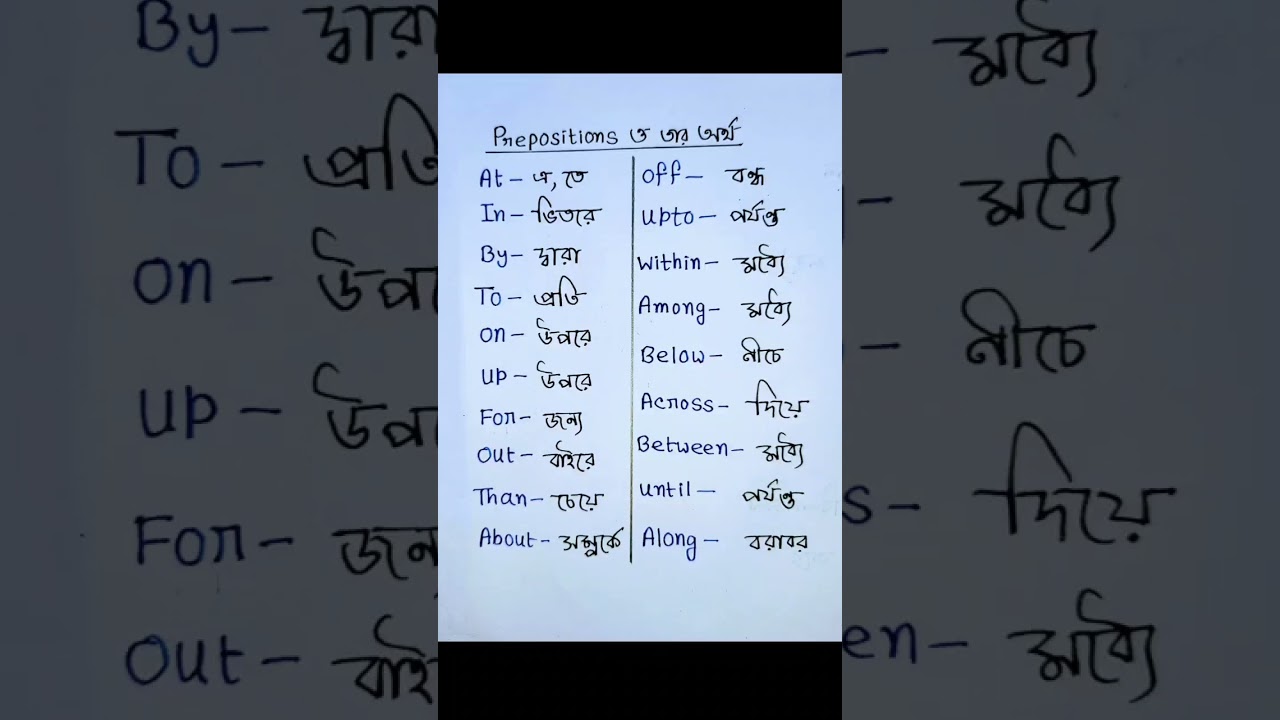 Prepositions ও তার অর্থ
At – এ, তে
In – ভিতরে
By – দ্বারা
To – প্রতি
on – উপরে
up – উপরে
For – জন্য
Out – বাইরে
Than – চেয়ে
About – সম্পর্কে
Off – বন্ধ
upto – পর্যন্ত
Within – মধ্যে
Among – মধ্যে
Below – নীচে
Across – দিয়ে
Between – মধ্যে
until – পর্যন্ত
Along – বরাবর